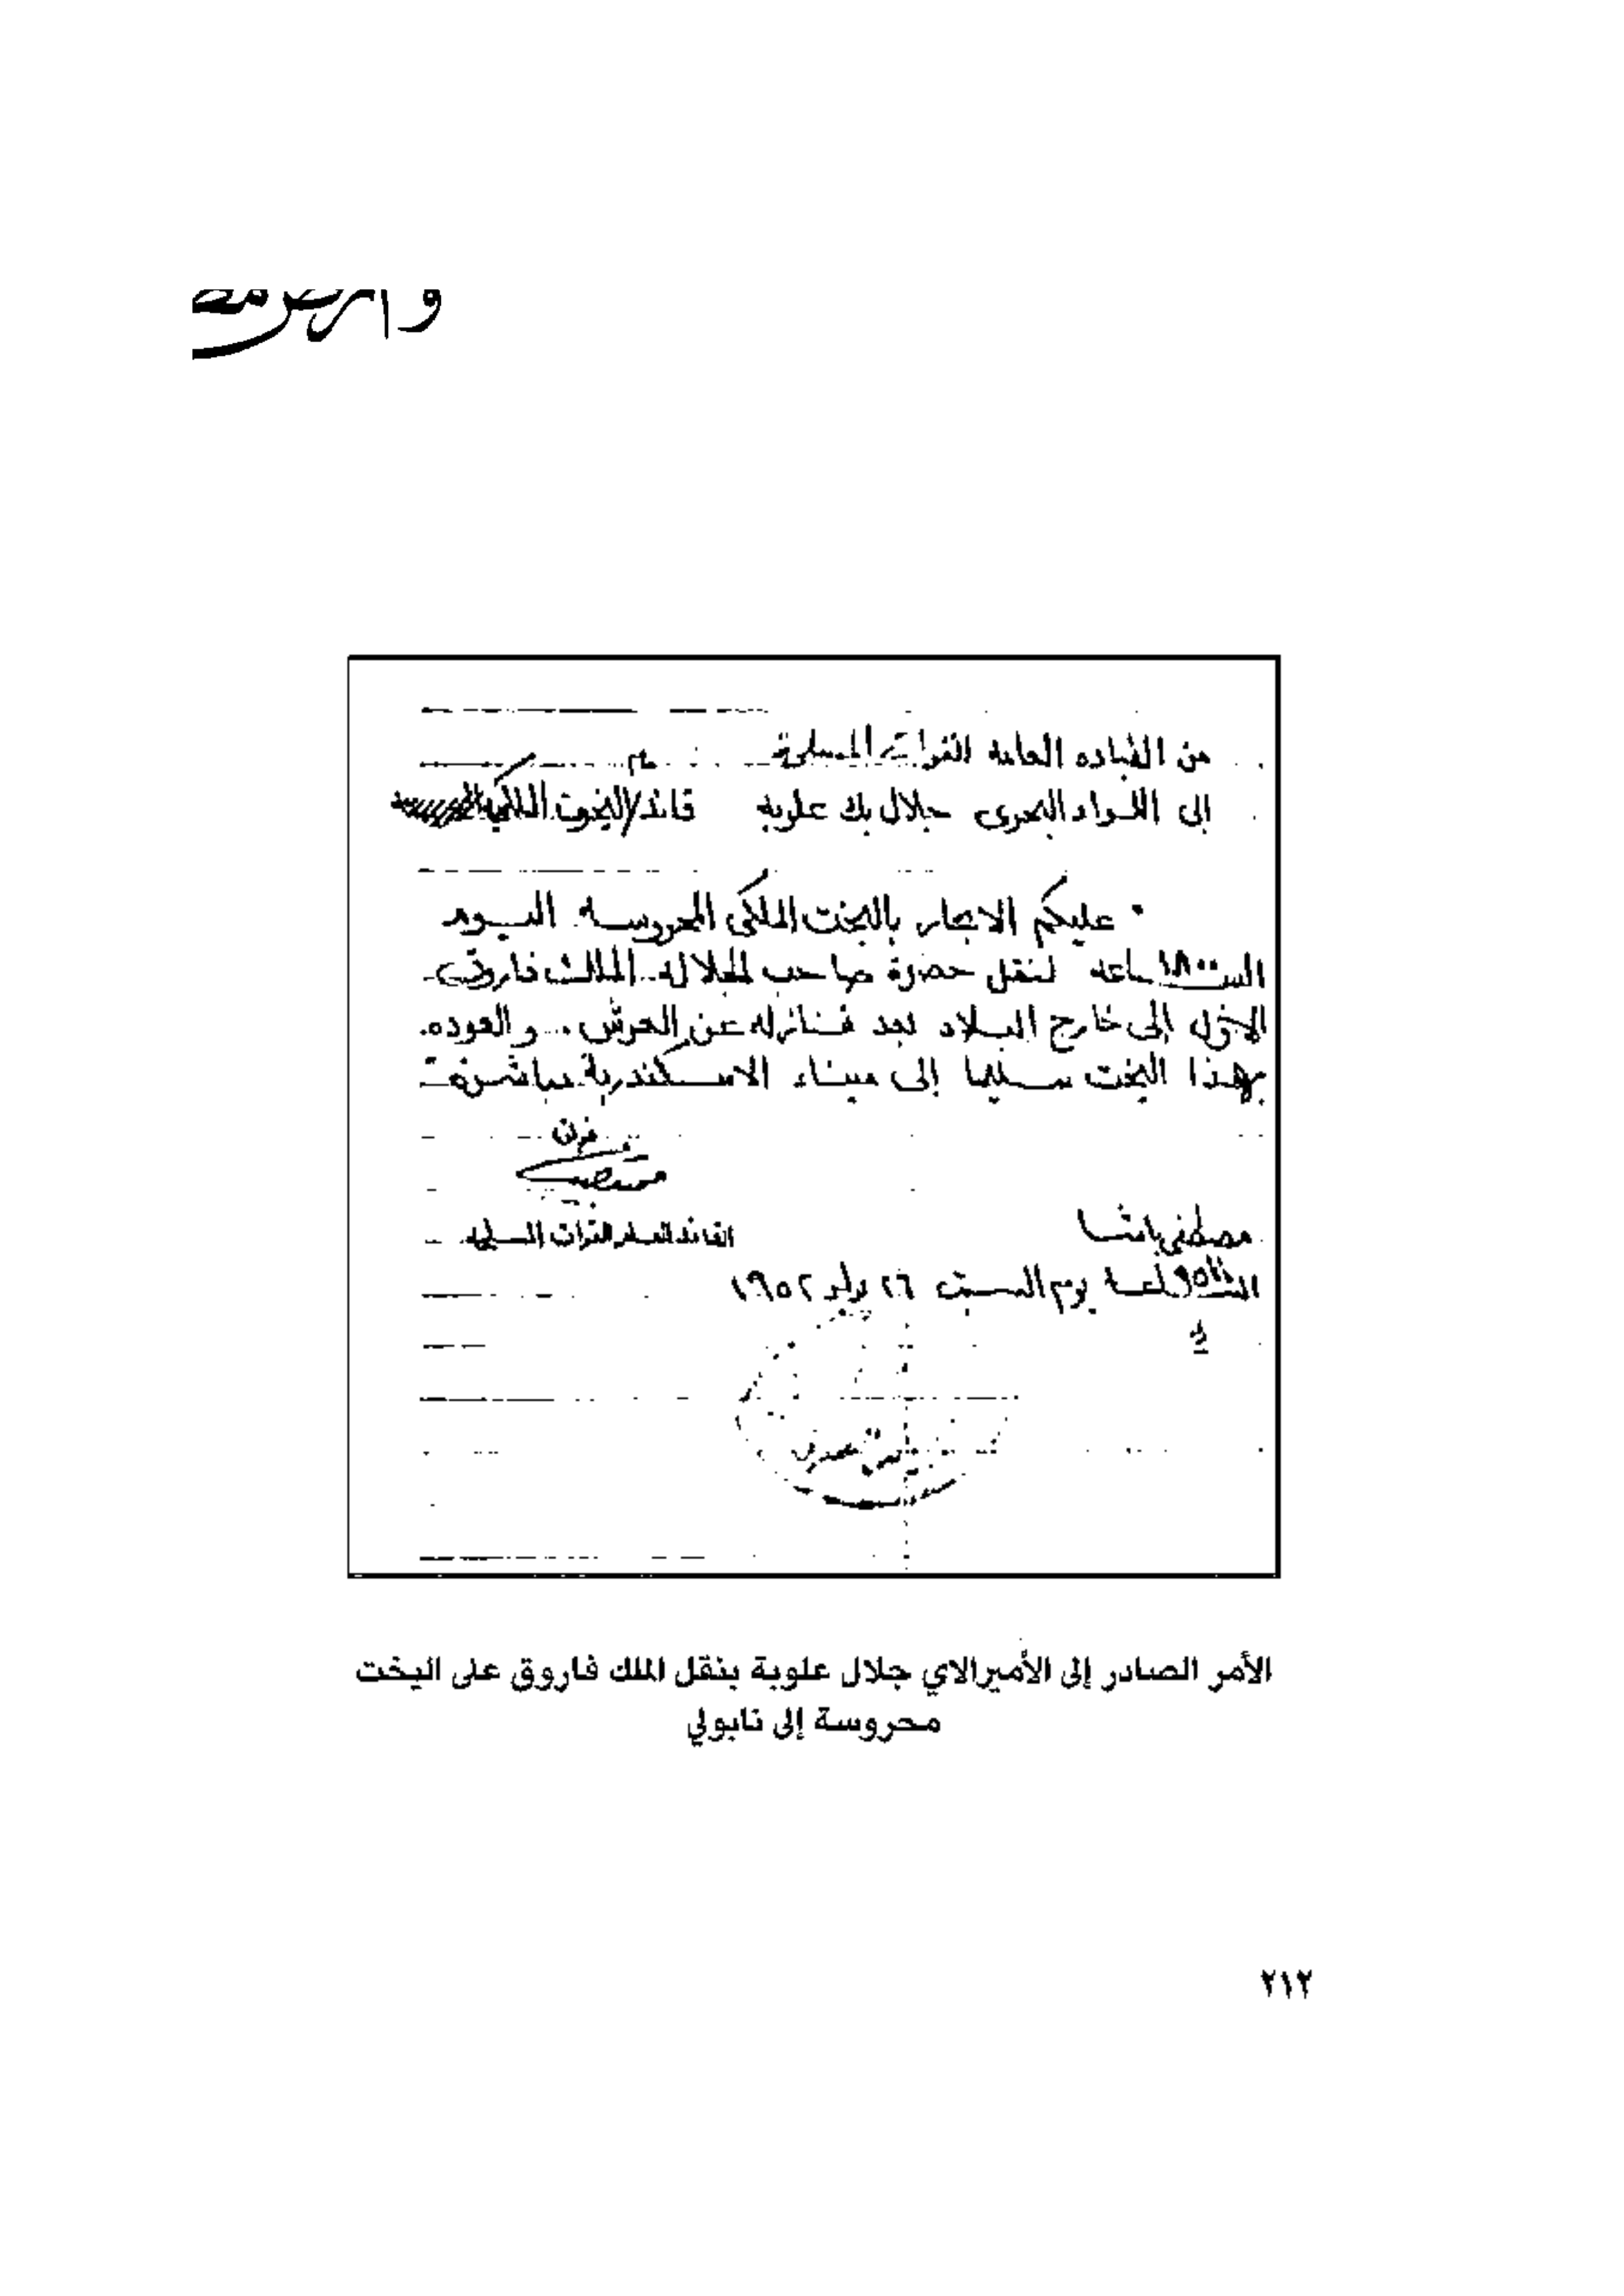 من القياده العامه للقوات المسلحة
إلى اللواء البحرى جلال بك علوبه قائد اليخوت الملكيه
عليكم الابحار باليخت الملكى المحروسه اليوم
الساعه ١٨٠٠ لنقل حضرة صاحب الجلاله الملك فاروق
الأول إلى خارج البلاد بعد تنازله عن العرش .. والعوده
بهذا اليخت سليما إلى ميناء الاسكندرية مباشرة
مصطفى باشا
القائد العام للقوات المسلحه
الساعة يوم السبت ٢٦ يوليو ١٩٥٢
الأمر الصادر إلى الأميرالاي جلال علوبة بنقل الملك فاروق على اليخت
محروسة إلى نابولي
٢١٢